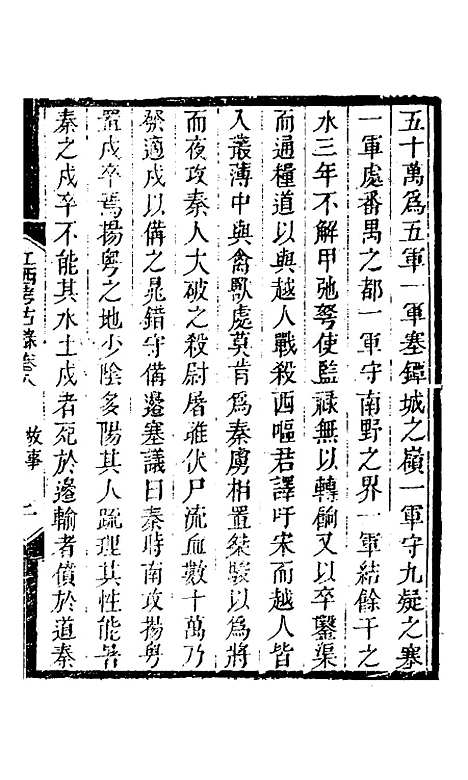 五十萬爲五軍一軍塞鐔城之嶺一軍守九疑之塞
一軍處番禺之都一軍守南野之界一軍結餘干之
水三年不解甲弛弩使監祿無以轉餉又以卒鑿渠
而通糧道以與越人戰殺西嘔君譯吁宋而越人皆
入叢薄中與禽獸處莫肯爲秦虜相置桀駿以爲將
而夜攻秦人大破之殺尉屠雎伏尸流血數十萬乃
發適戍以備之晁錯守備邊塞議曰秦時南攻揚粤
置戍卒焉揚粤之地少陰多陽其人疏理其性能暑
秦之戍卒不能其水土戍者死於邊輸者僨於道秦
江西考古錄卷八
故事
二